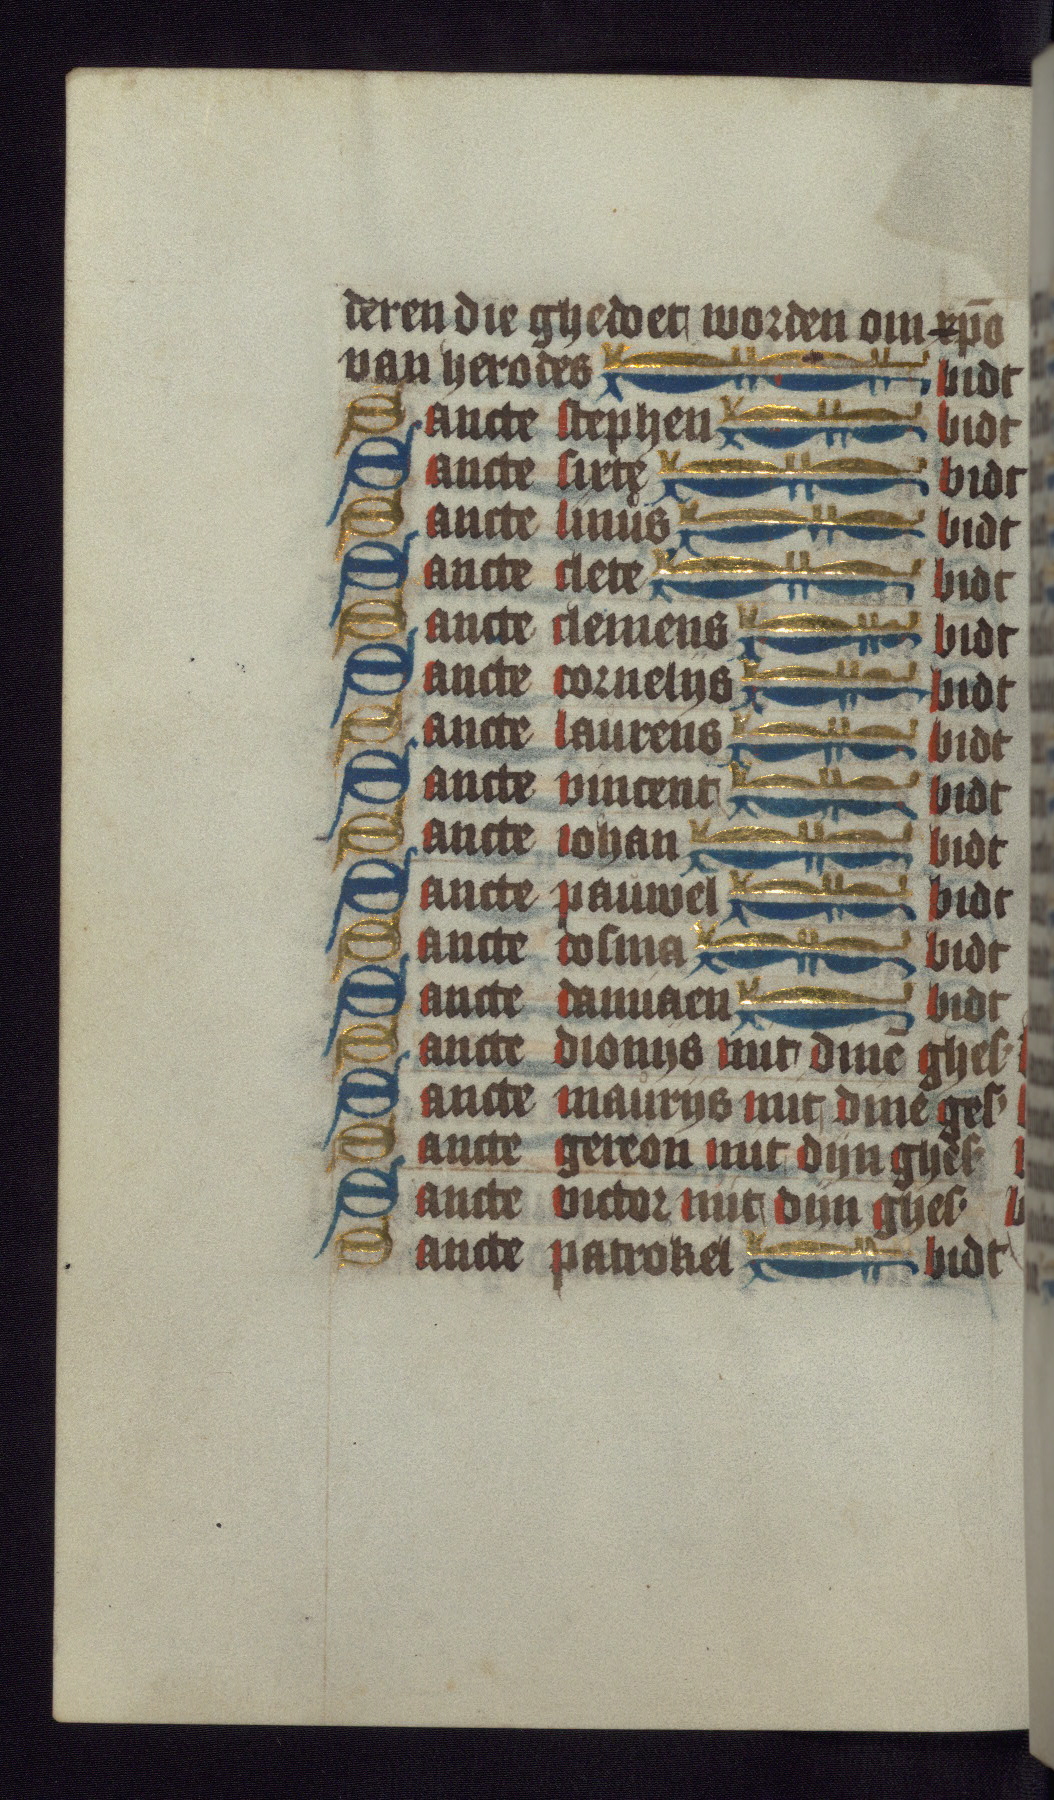 deren die ghedoet worden om xp̄o
van herodes bidt
Sancte stephen bidt
Sancte sixte bidt
Sancte linus bidt
Sancte clete bidt
Sancte clemens bidt
Sancte cornelijs bidt
Sancte laurens bidt
Sancte vincent bidt
Sancte iohan bidt
Sancte pauwel bidt
Sancte cosma bidt
Sancte damiaen bidt
Sancte dionijs mit dinē ghes
Sancte maurijs mit dinē ges
Sancte gereon mit dijn ghes
Sancte victor mit dijn ghes b
Sancte patrokel bidt